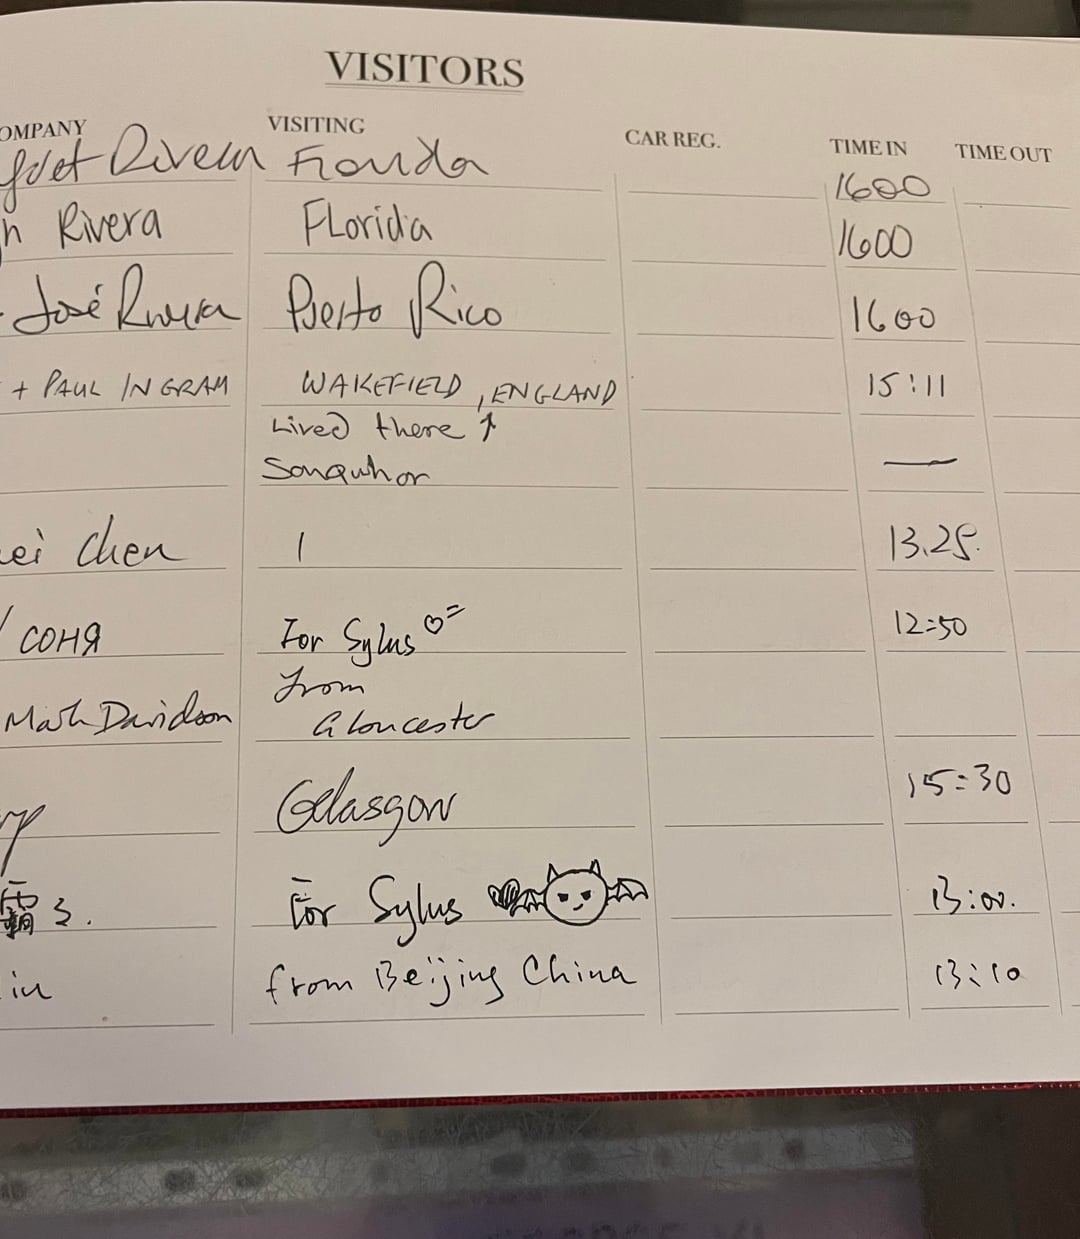 VISITORS
COMPANY VISITING CAR REG. TIME IN TIME OUT
Rivera Florida 1600
Rivera Florida 1600
José Rivera Puerto Rico 1600
+ PAUL INGRAM WAKEFIELD, ENGLAND 15:11
Lived there ↑
—
Chen 1 13.25.
СОНЯ For Sylus 12:50
From
Mark Davidson Gloucester
Gelasgow 15:30
For Sylus 13:00.
in from Beijing China 13:10